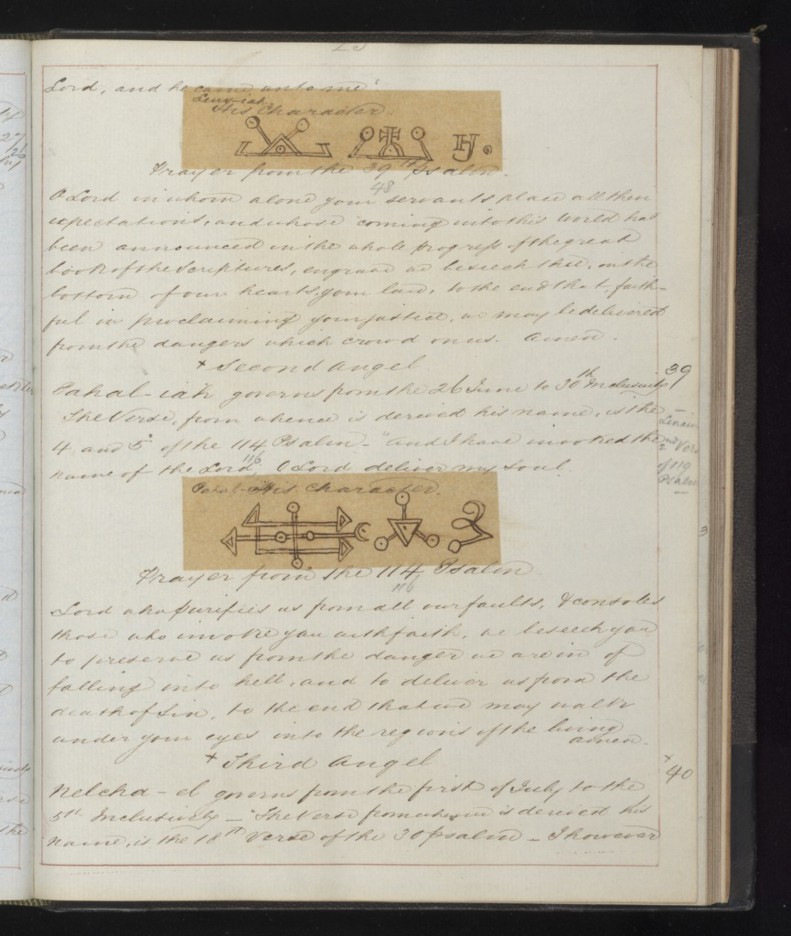 Lord, and he came unto me"
Leuv-iah
His Character.
Prayer from the 39th Psalm.
48
O Lord in whom alone your servants place all their
expectations, and whose coming into this World has
been announced in the whole progress of the great
book of the Scriptures, engrave we beseech thee, on the
bottom of our hearts, your law, to the end that, faith-
ful in proclaiming your justice, we may be delivered
from the dangers which crowd on us. Amen.
+ Second Angel
Pahal-iah governs from the 26 June to 30th Inclusively 39
The Verse, from whence is derived his name, is the
4 and 5 of the 114 Psalm - "and I have invoked the
116
name of the Lord, O Lord deliver my Soul.
2 Vers
of 119
Psalm
His Character.
Prayer from the 114 Psalm
116
Lord who purifies us from all our faults, & consoles
those who invoke you with faith, we beseech you
to preserve us from the danger we are in of
falling into hell, and to deliver us from the
death of Sin, to the end that we may walk
under your eyes into the regions of the living
amen.
+ Third Angel
+ 40
Nelcha-el governs from the first of July to the
5th Inclusively - "The Verse from whence is derived his
name, is the 18th Verse of the 30 psalm - I however